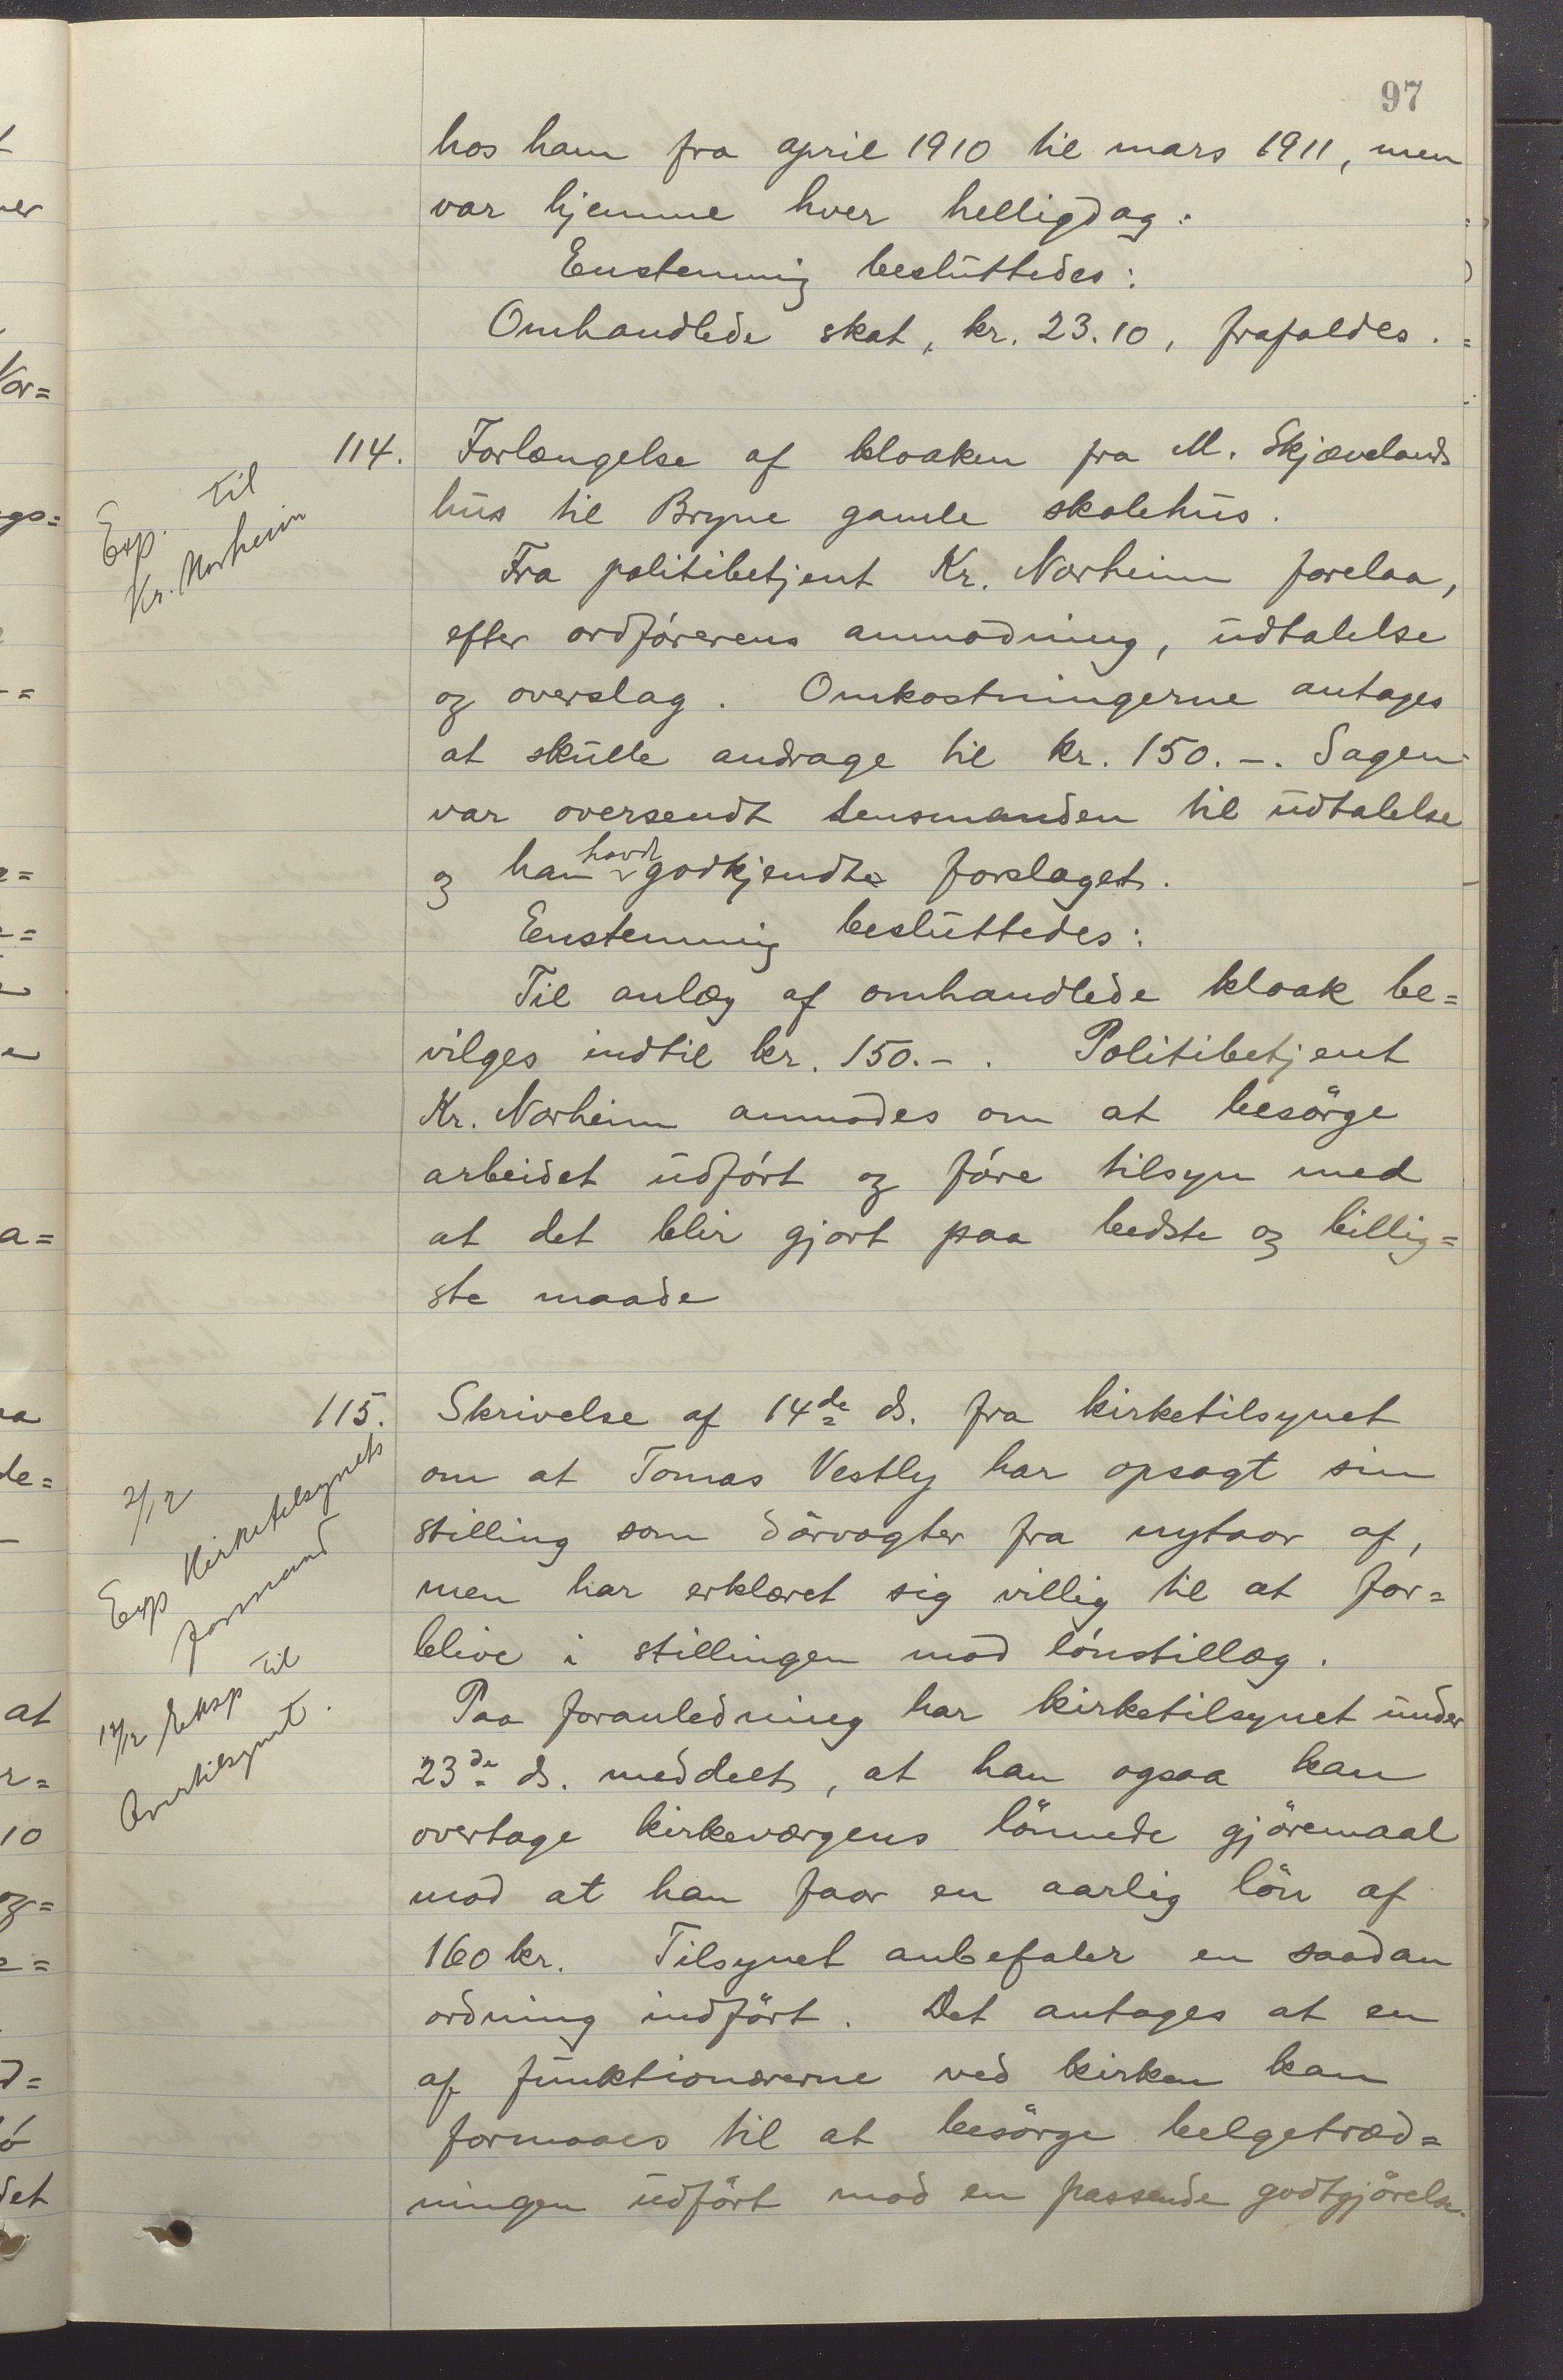 97
hos ham fra april 1910 til mars 1911, men
var hjemme hver helligdag.
Enstemmig besluttedes:
Omhandlede skat, kr. 23.10, frafaldes.
114.
Exp. til
Kr. Norheim
Forlængelse af kloaken fra M. Skjævelands
hus til Bryne gamle skolehus.
Fra politibetjent Kr. Norheim forelaa,
efter ordførerens anmodning, udtalelse
og overslag. Omkostningerne antages
at skulle andrage til kr. 150.-. Sagen
var oversendt lensmanden til udtalelse
og han havde godkjendt forslaget.
Enstemmig besluttedes:
Til anlæg af omhandlede kloak be=
vilges indtil kr. 150.-. Politibetjent
Kr. Norheim anmodes om at besörge
arbeidet udfórt og fóre tilsyn med
at det blir gjort paa bedste og billig=
ste maade
115.
2/12
Exp Kirketilsynets
formand
12/12 Eksp til
Skrivelse af 14de ds. fra kirketilsynet
om at Tomas Vestly har opsagt sin
stilling som dörvogter fra nytaar af,
men har erklæret sig villig til at for=
blive i stillingen mod lónstillæg.
Paa foranledning har kirketilsynet under
23de ds. meddelt, at han ogsaa kan
overtage kirkeværgens lönnede gjöremaal
mod at han faar en aarlig lön af
160 kr. Tilsynet anbefaler en saadan
ordning indfört. Det antages at en
af funktionærerne ved kirken kan
formaaes til at besörge belgetræd=
ningen udfört mod en passende godtgjörelse.